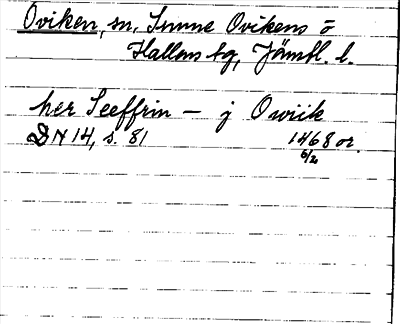 Oviken, sn, Sunne Ovikens o
Hallens tg, Jämtl. l.
her Seeffrin – j Owiik
DN 14, s. 81 1468 or.
6/2